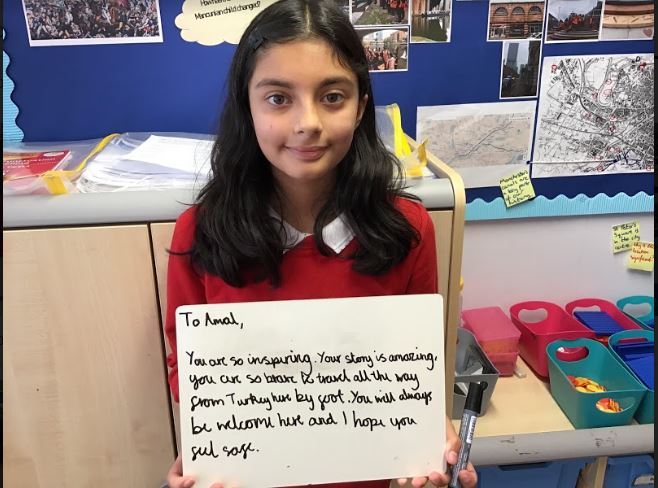 How has
Mancunian child changed?
To Amal,
You are so inspiring. Your story is amazing,
you are so brave to travel all the way
from Turkey here by foot. You will always
be welcome here and I hope you
feel safe.